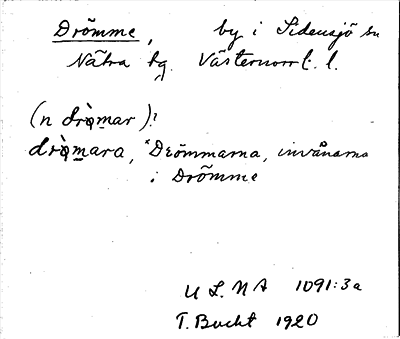 Drömme, by i Sidensjö sn
Nätra tg. Västernorrl. l.
(n drò̤mar):
drò̤mara, "Drömmarna, invånarna
i Drömme
U L M A 1091:3a
T. Bucht 1920